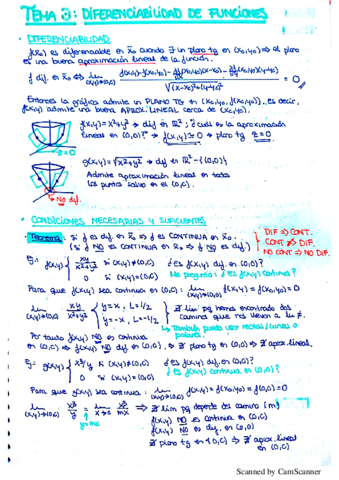 TEMA 2: DIFERENCIABILIDAD DE FUNCIONES
· DIFERENCIABILIDAD
f(x̄) es diferenciable en x̄₀ cuando ∃ un plano tg en (x₀,y₀) → el plano
es una buena aproximación lineal de la función.
f dif. en x̄₀ ⇔ lim (x,y)→(x₀,y₀)
= 0
√(x-x₀)²+(y-y₀)²
Entonces la gráfica admite un PLANO TG en (x₀,y₀,f(x₀,y₀)). Es decir,
f(x,y) admite una buena APROX. LINEAL cerca de (x₀,y₀).
f(x,y) = x²+y² → dif en ℝ², ¿cuál es la aproximación
lineal en (0,0)? → f(x,y) ≃ 0 → plano tg z=0
z=0
g(x,y) = √x²+y² → dif en ℝ² - {(0,0)}
Admite aproximación lineal en todos
los puntos salvo en el (0,0).
No dif.
· CONDICIONES NECESARIAS Y SUFICIENTES
Teorema: si f es dif en x̄₀ ⇒ f es CONTINUA en x̄₀.
(si f NO es CONTINUA en x̄₀ ⇒ f NO es dif.)
DIF ⇒ CONT.
CONT ⇏ DIF.
NO CONT ⇒ NO DIF
Ej: f(x,y) { xy/x²+y² si (x,y)≠(0,0) ¿Es f(x,y) dif. en (0,0)?
0 si (x,y)=(0,0) Me pregunto: ¿Es f(x,y) continua?
Para que f(x,y) sea continua en (0,0): lim (x,y)→(0,0) f(x,y) = f(x₀,y₀) = 0
lim (x,y)→(0,0) xy/x²+y² { y=x, L=1/2
y=-x, L=-1/2
∄ lim pq hemos encontrado dos
caminos que nos llevan a lu ≠.
↳ También puedo usar rectas (lunas o
polares).
Por tanto f(x,y) NO es continua
en (0,0) ⇒ f(x,y) NO es dif en (0,0) ⇒ ∄ plano tg en (0,0) ⇒ ∄ aprox. lineal.
Ej: g(x,y) { x³/y si (x,y)≠(0,0) ¿Es f(x,y) dif. en (0,0)?
0 si (x,y)=(0,0) ¿Es f(x,y) continua en (0,0)?
Para que g(x,y) sea continua: lim (x,y)→(0,0) f(x,y) = f(x₀,y₀) = f(0,0) = 0
lim (x,y)→(0,0)
y=mx
∄ lim pq depende del camino (m)
f(x,y) NO es continua en (0,0)
f(x,y) NO es dif. en (0,0)
∄ plano tg en (0,0) ⇒ ∄ aprox. lineal
en (0,0)
Scanned by CamScanner